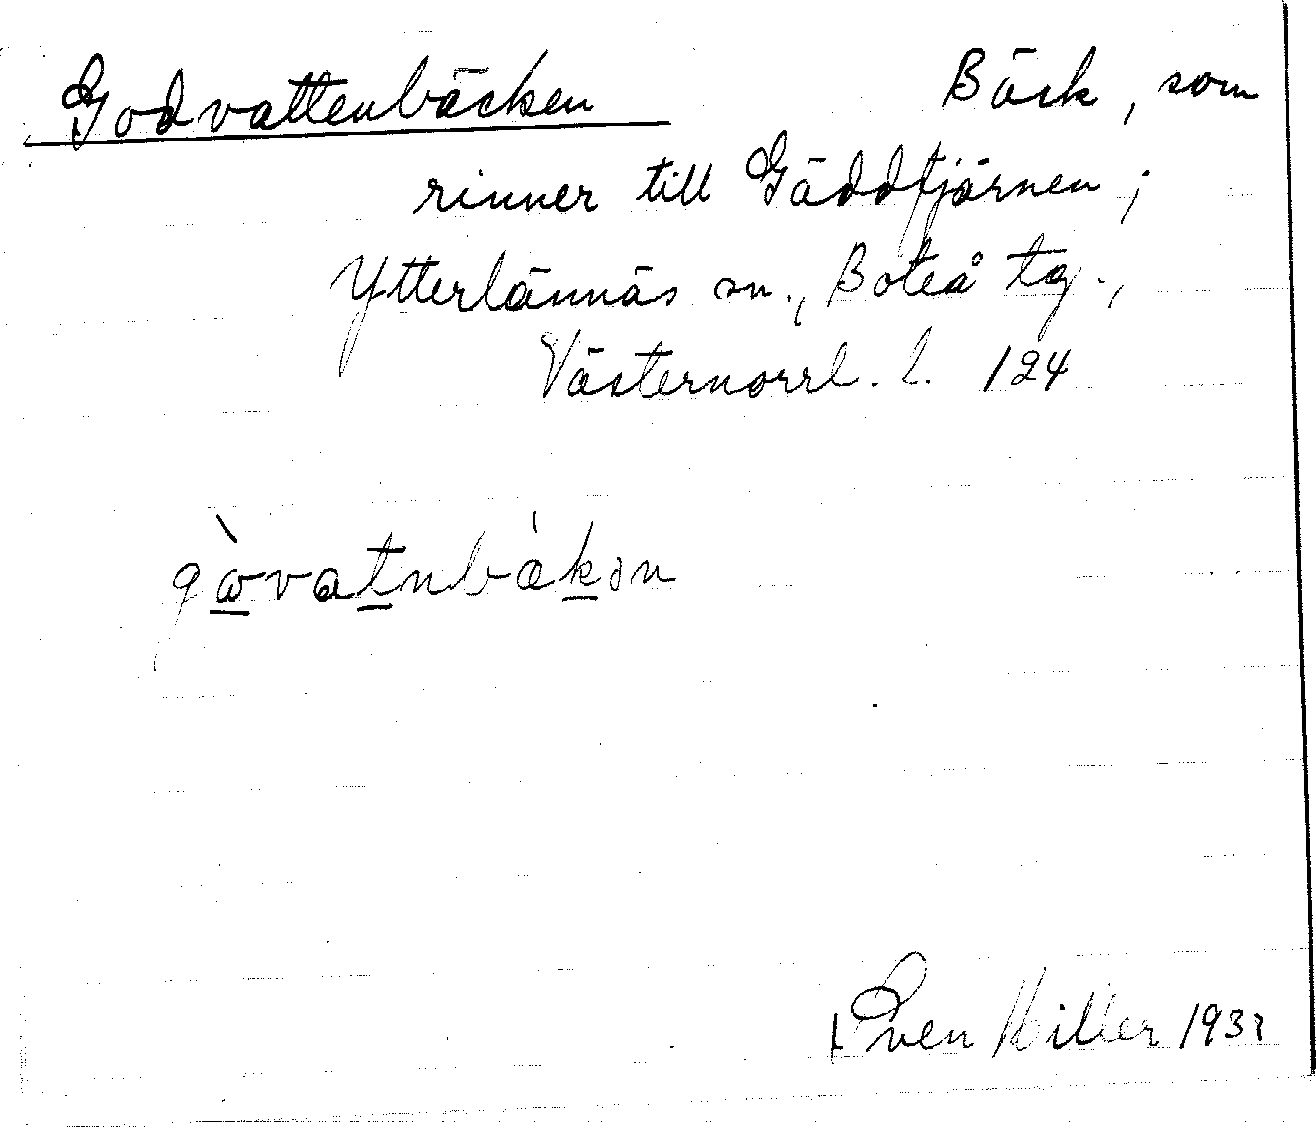 Godvattenbäcken Bäck, som
rinner till Gäddtjärnen;
Ytterlännäs sn., Boteå tg.,
Västernorrl. l. 124
gòvatnbákən
Sven Hiller